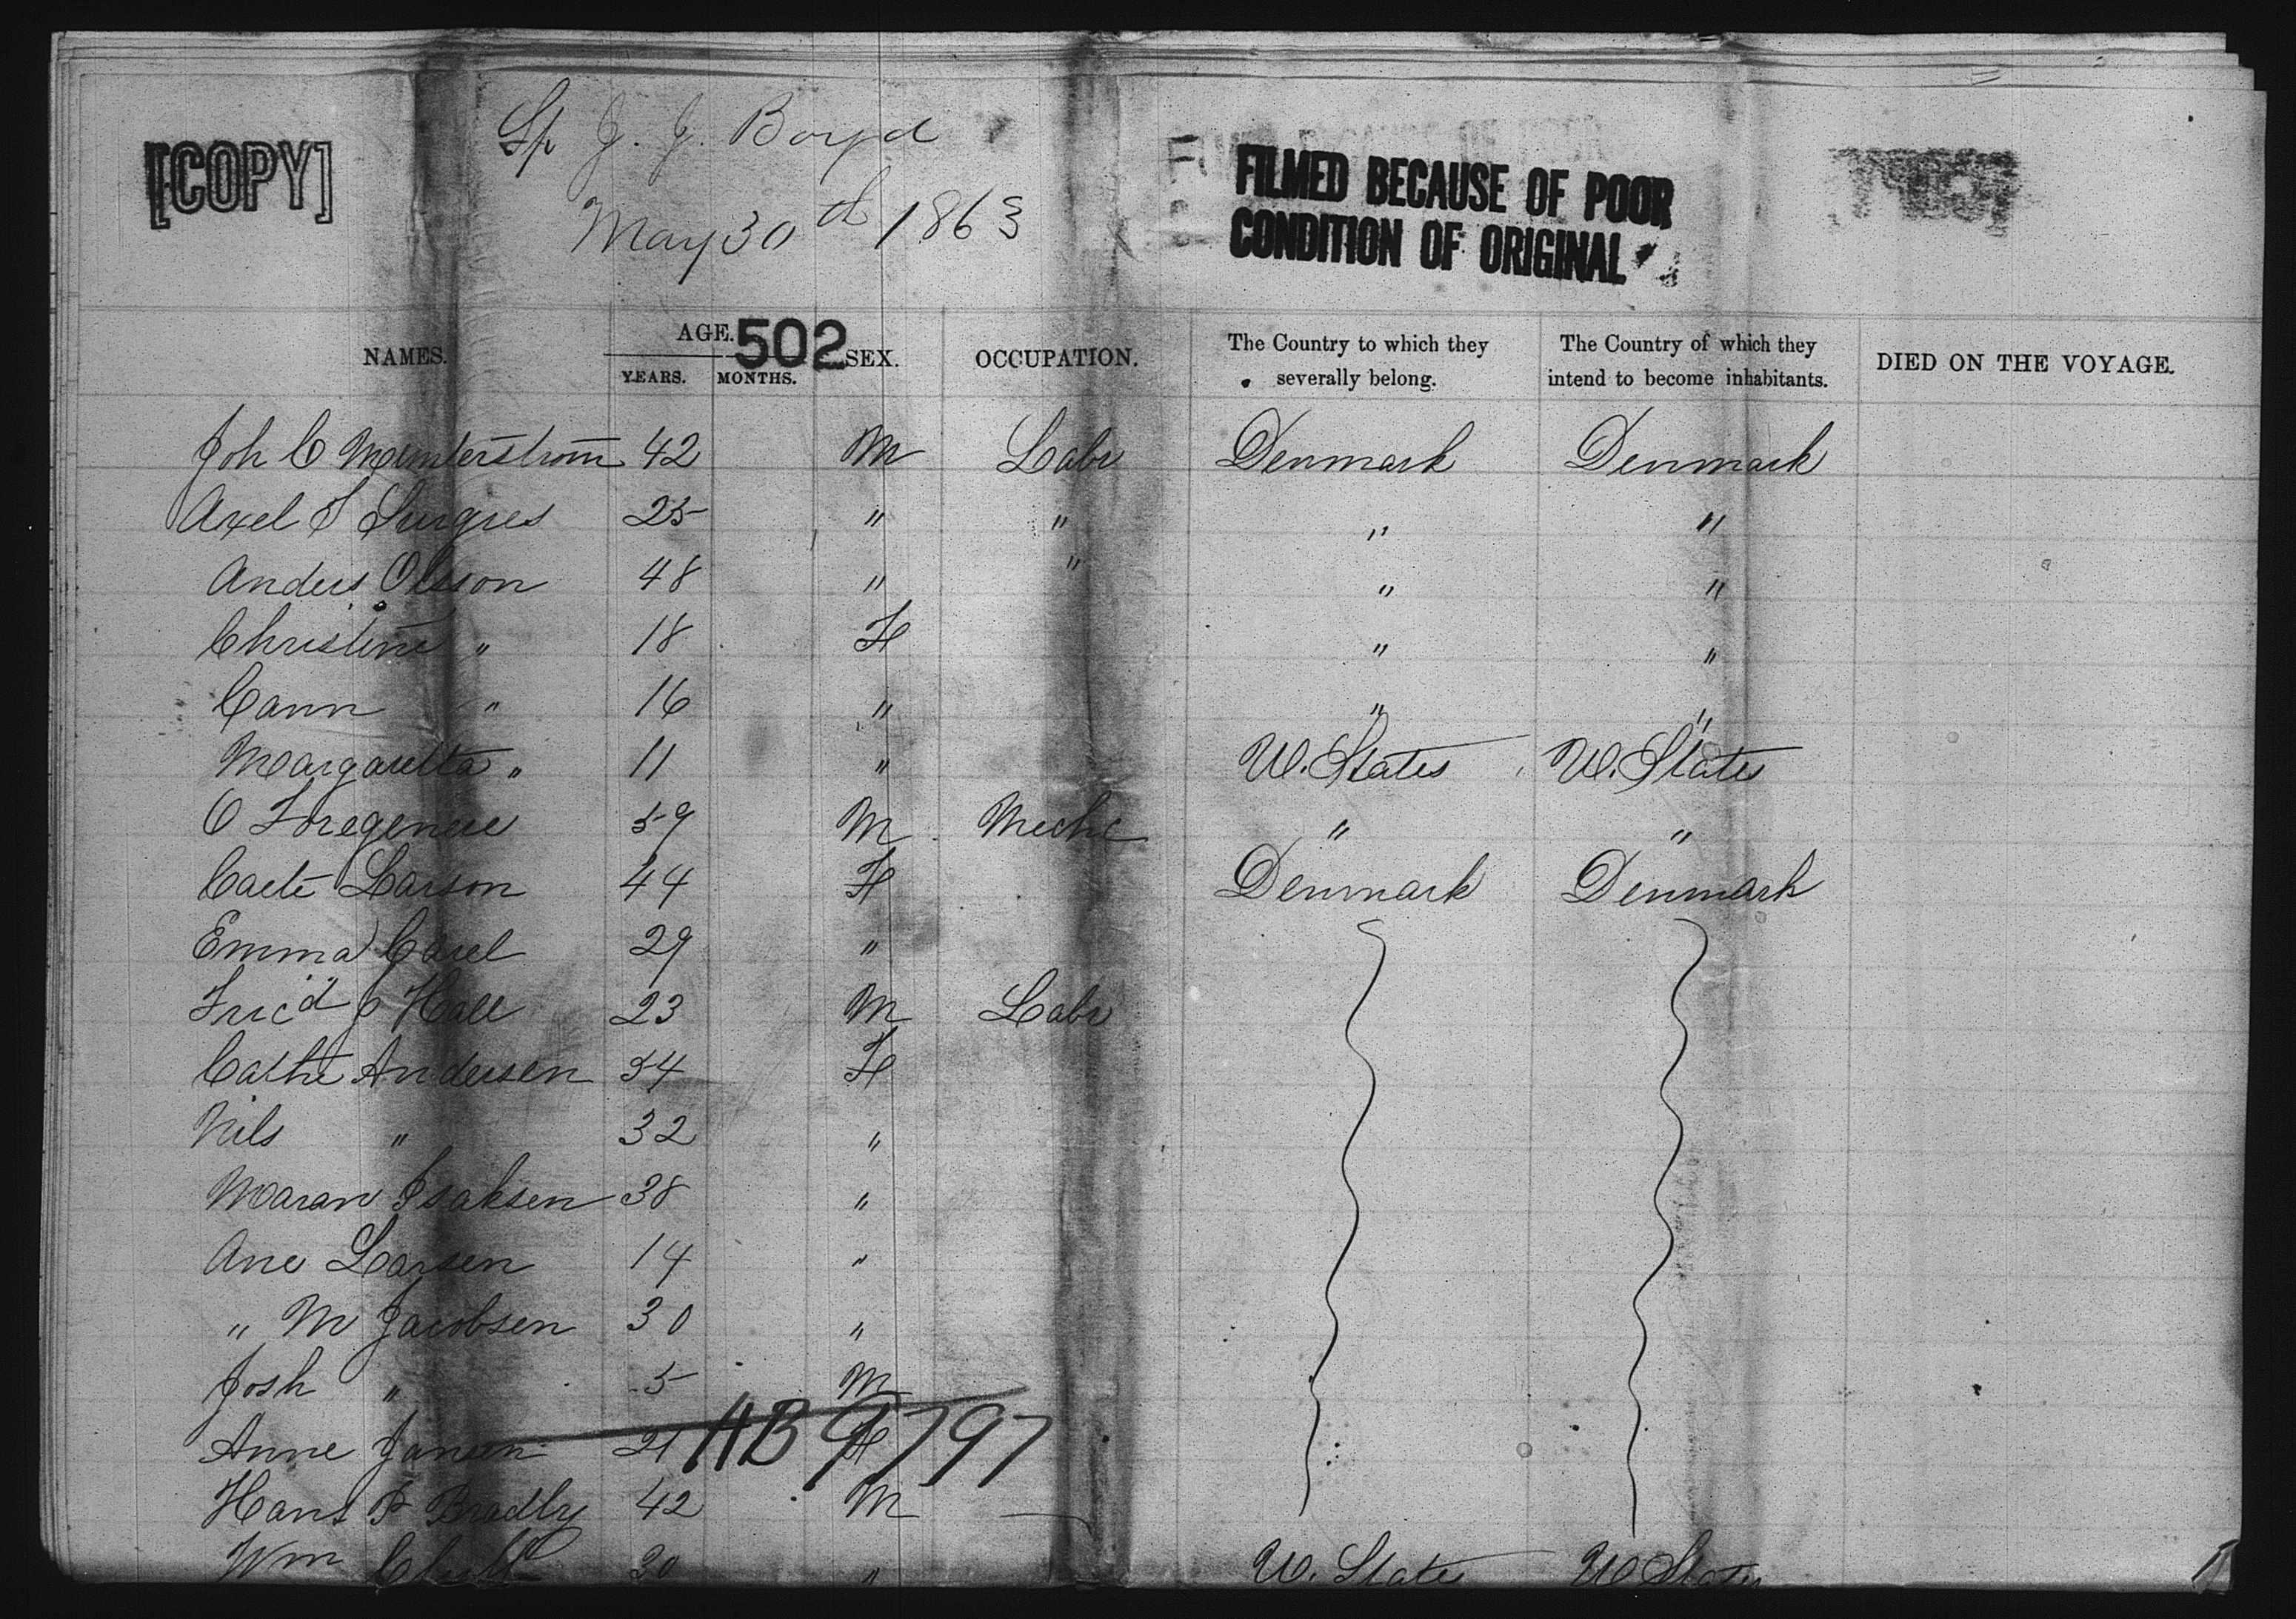 [COPY]
Sp J. J. Boyd
May 30th 1863
FILMED BECAUSE OF POOR
CONDITION OF ORIGINAL
502
NAMES. AGE. YEARS. MONTHS. SEX. OCCUPATION. The Country to which they severally belong. The Country of which they intend to become inhabitants. DIED ON THE VOYAGE.
Joh C 42 M Labr Denmark Denmark
Axel 25 " " " "
Anders Olsson 48 " " " "
Christine " 18 F " "
Cann " 16 " " "
Margaretta " 11 " U. States U. States
C 59 M Mechc " "
Larson 44 F Denmark Denmark
Emma Carel 29 "
Fred P Hall 23 M Labr
Cathe Andersen 34 F
Nils " 32 "
Maran Isaksen 38 "
Ane Larsen 14 "
" M Jacobsen 30 "
Josh " 5 M
Anne Jansen 21 F
AB 9797
Hans P Bradly 42 M
Wm 30 " U. States U States